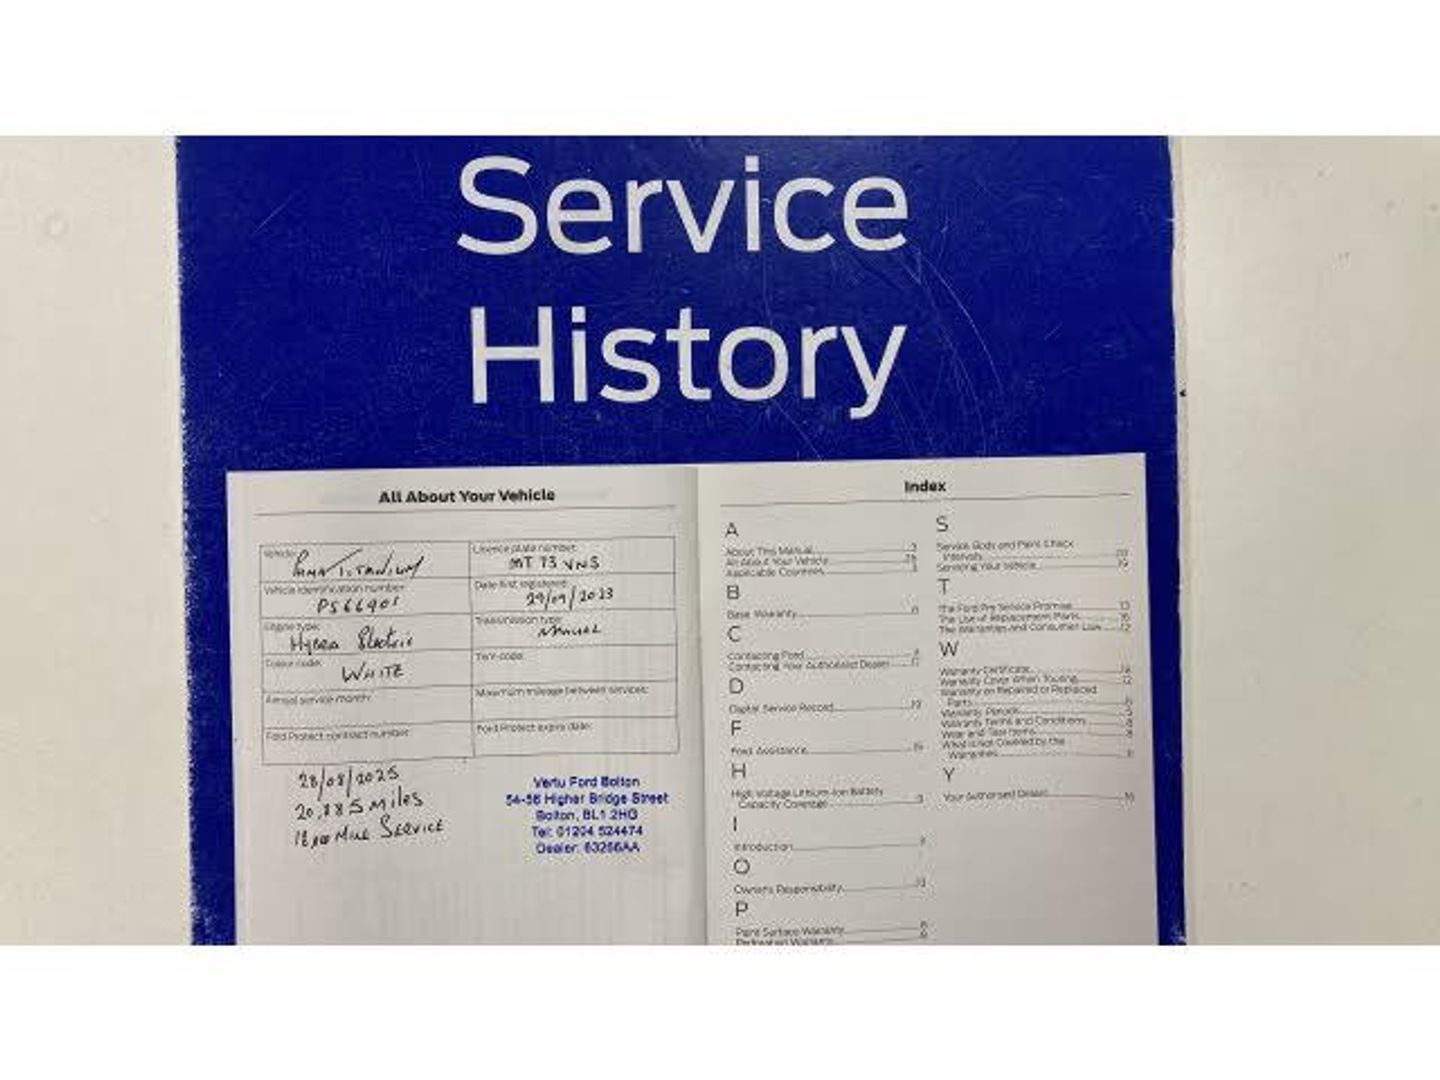 Service
History
All About Your Vehicle
Vehicle: Puma Titanium
Licence plate number: MT 73 VNS
Vehicle identification number: PS66901
Date first registered: 29/09/2023
Engine type: Hybrid Electric
Transmission type: Manual
Colour code: White
Trim code:
Annual service month:
Maximum mileage between services:
Ford Protect contract number:
Ford Protect expiry date:
28/08/2025
20,885 Miles
Mile Service
Vertu Ford Bolton
54-56 Higher Bridge Street
Bolton, BL1 2HG
Tel: 01204 524474
Dealer: 63266AA
Index
A
About This Manual 3
All About Your Vehicle
Applicable Countries
B
Base Warranty
C
Contacting Ford
Contacting Your Authorised Dealer
D
Digital Service Record
F
Ford Assistance
H
High Voltage Lithium-Ion Battery
Capacity Coverage
I
Introduction
O
Owner's Responsibility
P
Paint Surface Warranty
Perforation Warranty
S
Service, Body and Paint Check
Intervals
Servicing Your Vehicle 19
T
The Ford Pre Service Promise
The Use of Replacement Parts
The Warranties and Consumer Law 12
W
Warranty Certificate
Warranty Cover When Touring 12
Warranty on Repaired or Replaced
Parts
Warranty Periods
Warranty Terms and Conditions
Wear and Tear Items
What is Not Covered by the
Warranties
Y
Your Authorised Dealer